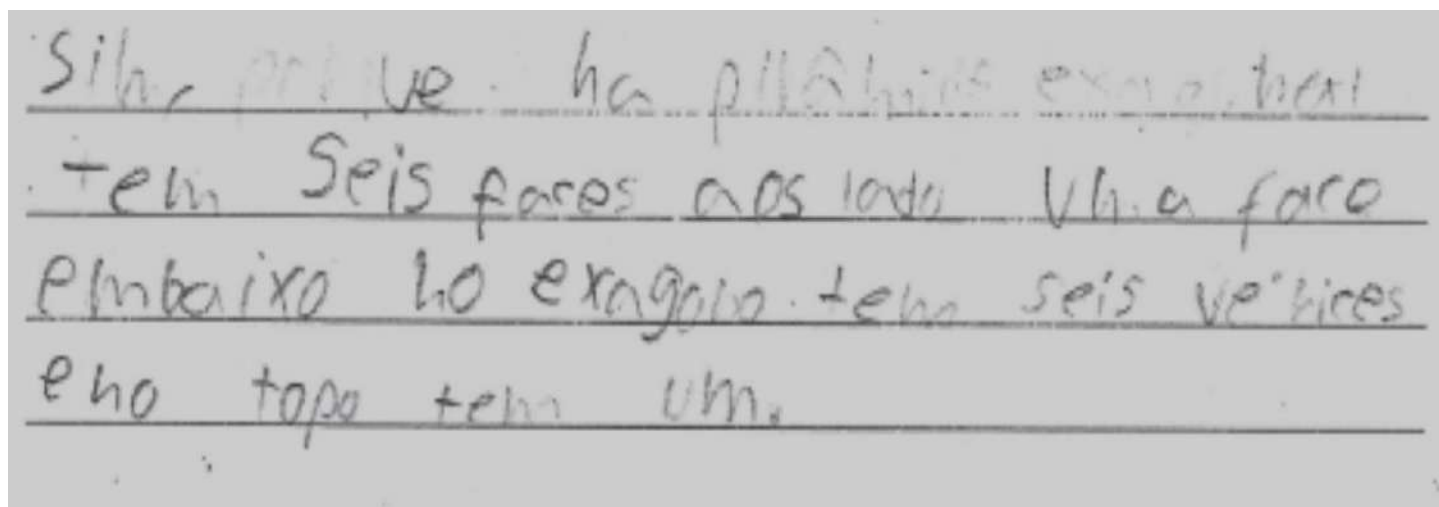 Sim, porque na pirâmide exagonal
tem Seis faces aos lado Uma face
embaixo no exagono tem seis vertices
e no topo tem um.